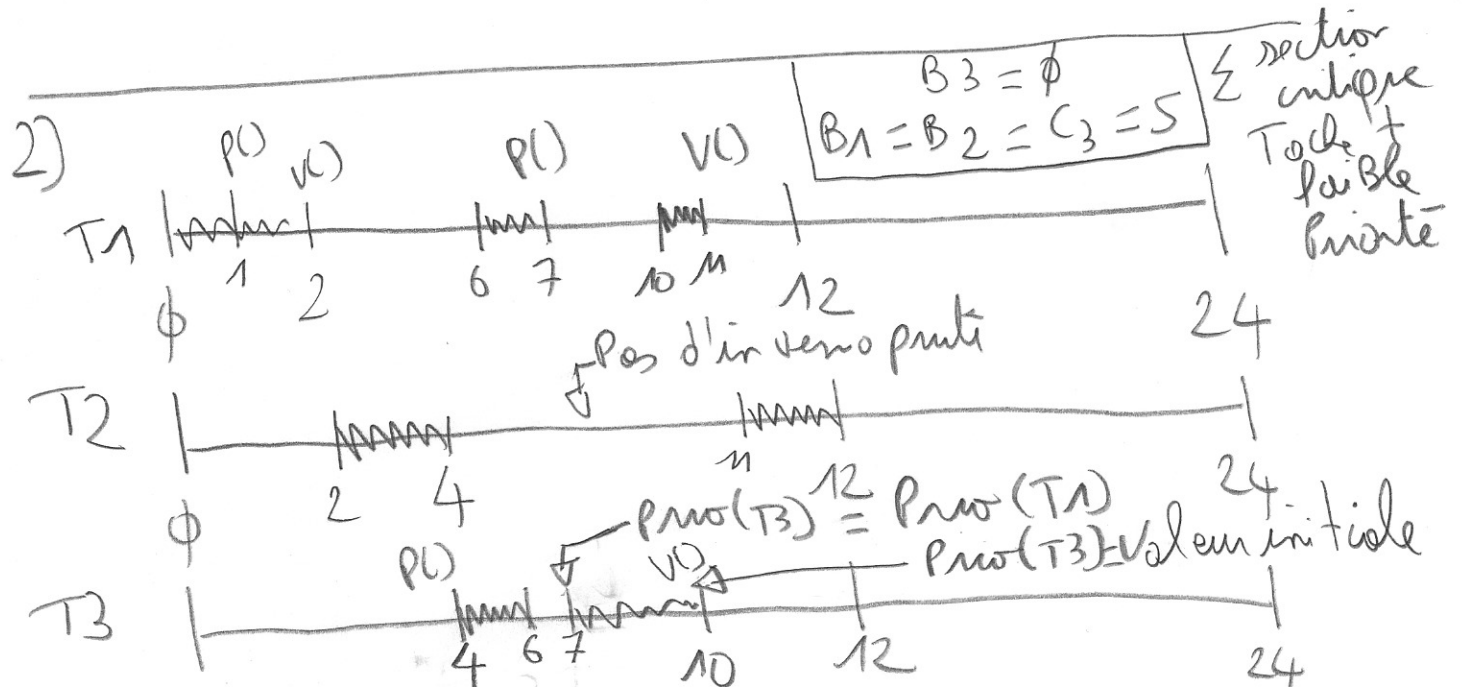 B3 = ϕ
B1 = B2 = C3 = 5
Σ section
critique
Tâche +
faible
Priorité
2)
P() V() P() V()
T1
ϕ 1 2 6 7 10 11 12 24
Pas d'inverso priorité
T2
ϕ 2 4 11 12 24
Prio(T3) = Prio(T1)
Prio(T3)=Valeur initiale
P() V()
T3
4 6 7 10 12 24